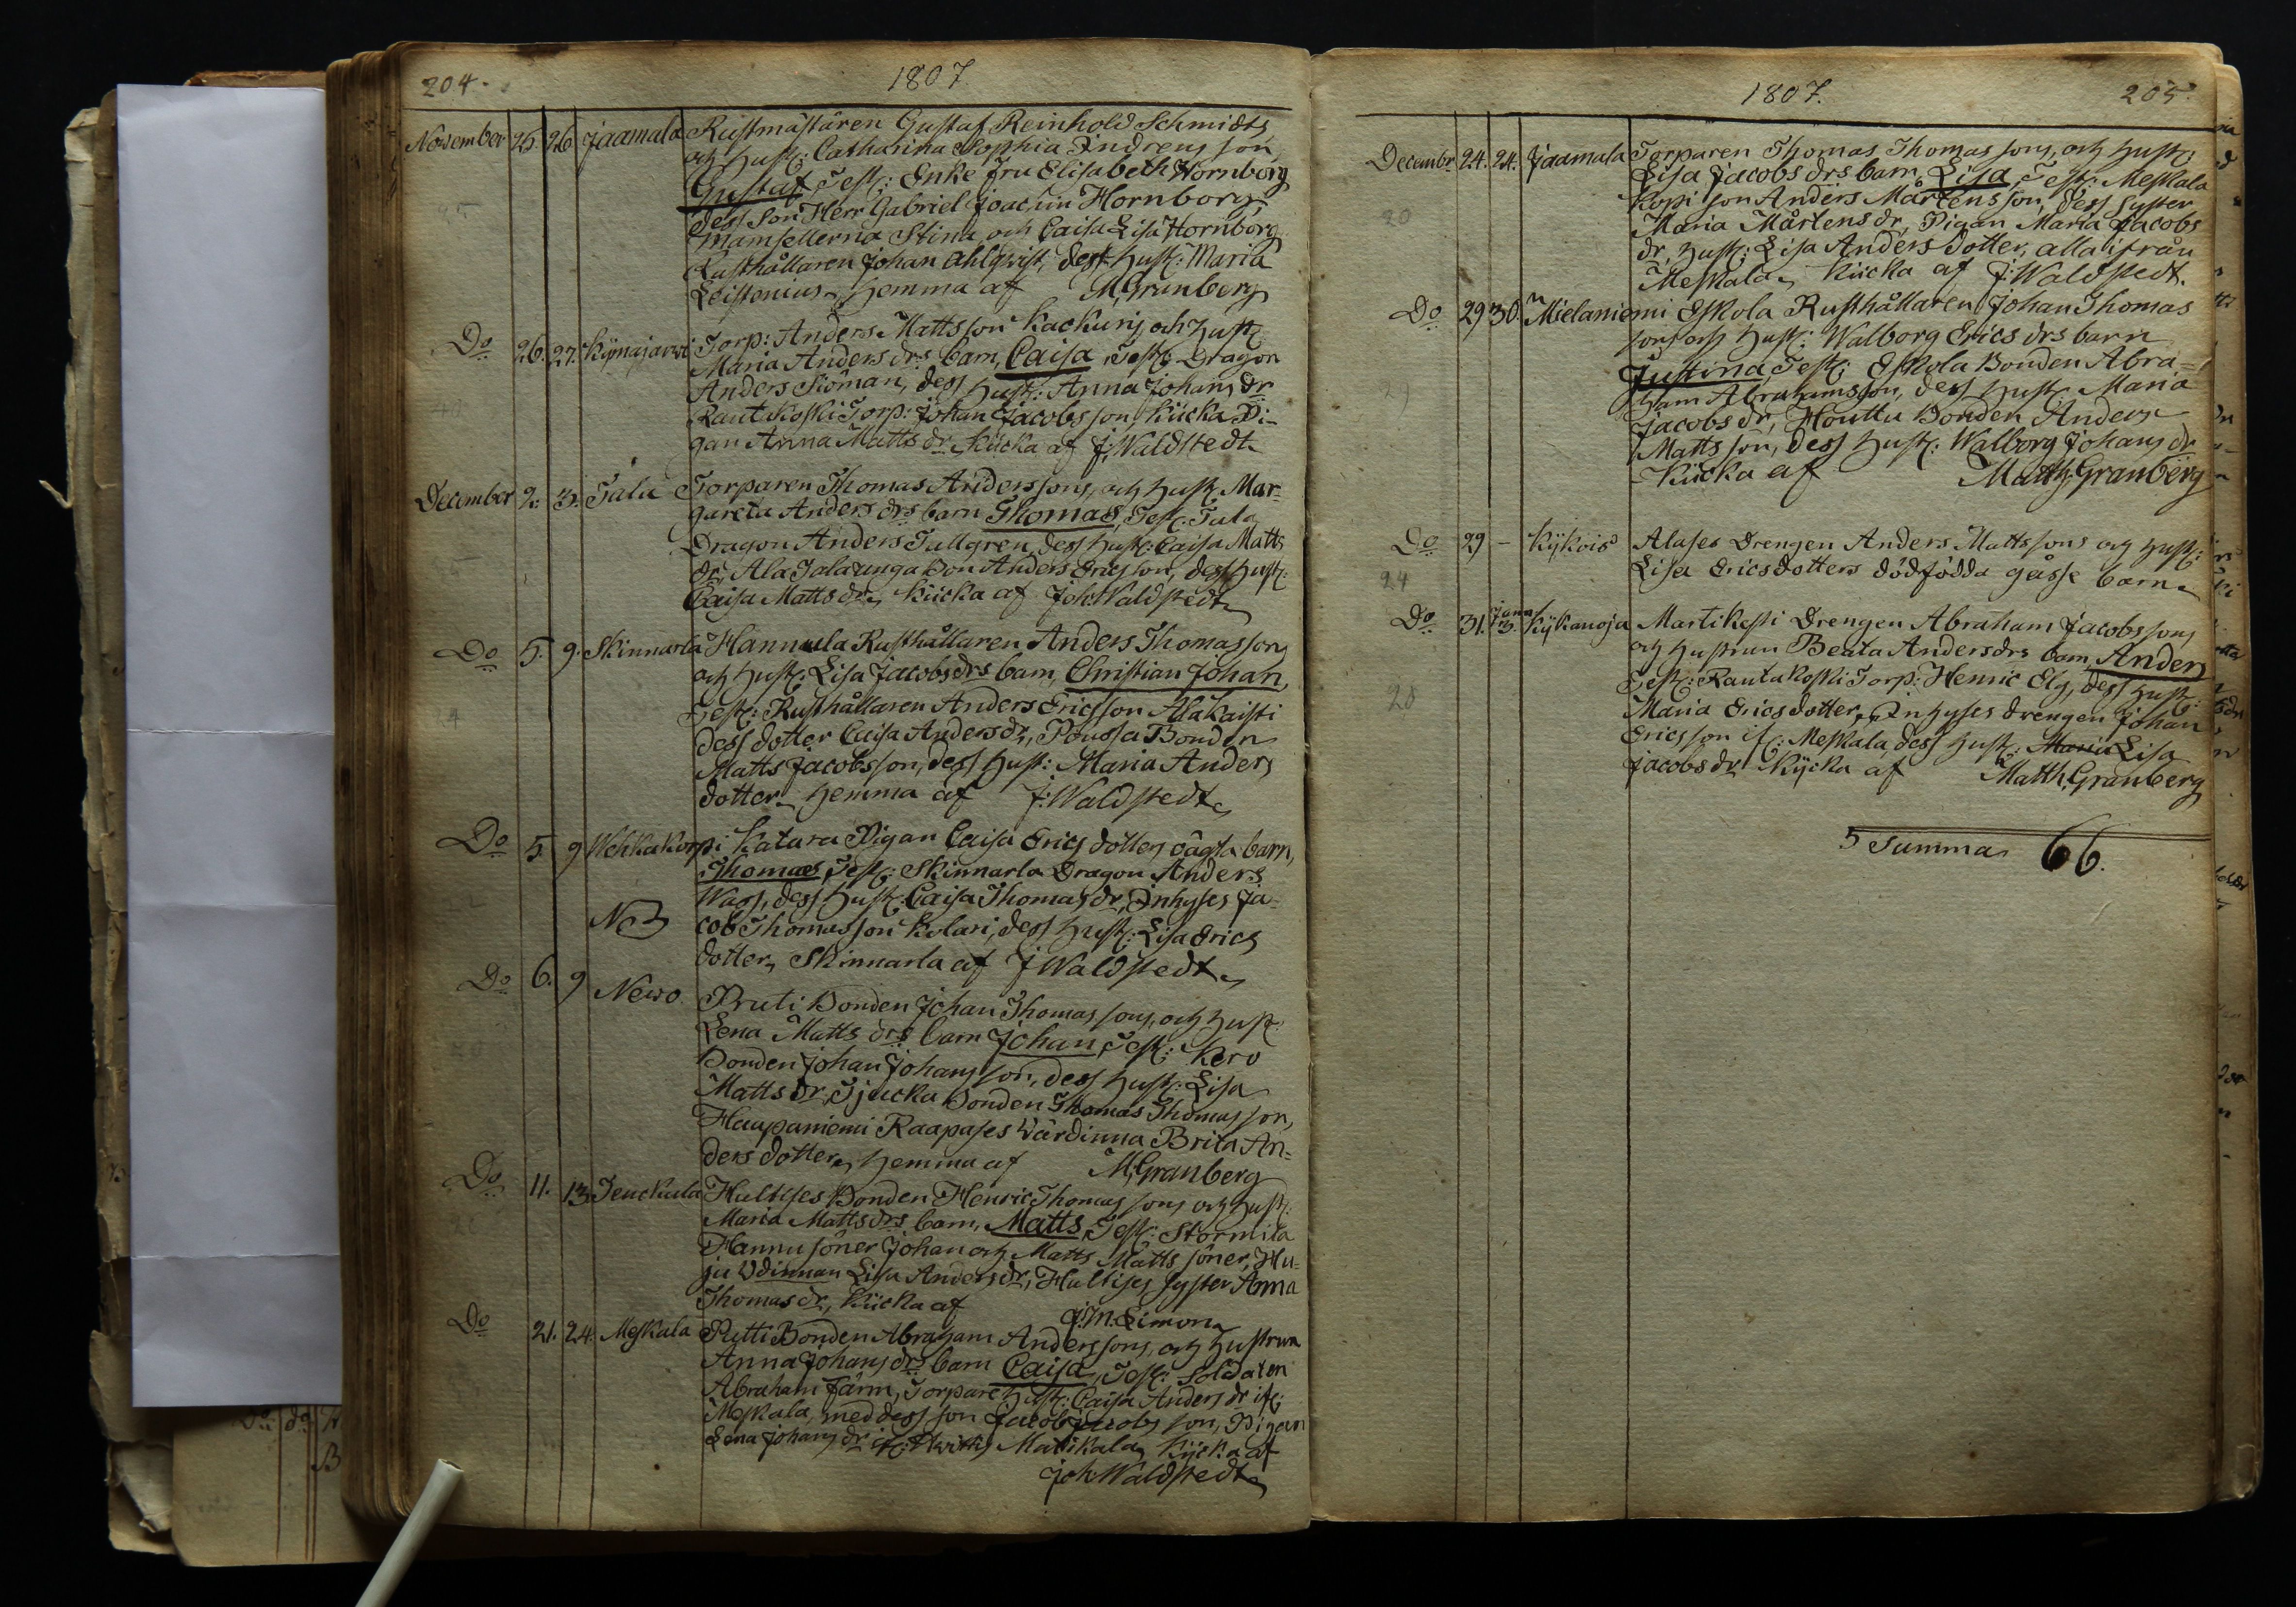 204.
1807
November 25. 26. Jaamala Rustmästaren Gustaf Reinhold Schmidts
och Hust: Catharina Sophia Indrens son
Gustaf, Test: Enke Fru Elisabeth Hornborg
dess Son Herr Gabriel Joachim Hornborg,
Mamsellerna Stina och Caisa Lisa Hornborg
Rusthållaren Johan Ahlqvist, dess Hust: Maria
Leistenius, hemma af M. Granberg
Do 26. 27. Kymajärvi Torp: Anders Mattsson Kackuris och Hust:
Maria Anders drs barn, Caisa, Test: Dragon
Anders Sköman, dess Hust: Anna Johans dr
Rautakoski Torp: Johan Jacobsson Kiicka, Pi-
gan Anna Matts dr Kiicka af J. Waldstedt
December 2. 3. Tala Torparen Thomas Anderssons, och Hust. Mar-
gareta Anders drs barn Thomas, Test: Tala
Dragon Anders Tallgren, dess Hust: Caisa Matts
dr, Ala Tala unga Bon Anders Ericsson, dess Hust:
Caisa Matts dr, Kiicka af Joh: Waldstedt
Do 5. 9. Skinnarla Hannula Rusthållaren Anders Thomassons
och Hust: Lisa Jacobsdrs barn, Christian Johan,
Test: Rusthållaren Anders Ericsson Alakaisti
dess dotter Caisa Anders dr, Poussa Bonden
Matts Jacobsson, dess Hust: Maria Anders
dotter, hemma af J: Waldstedt
Do 5. 9 Wehkakorpi Katara Pigan Caisa Erics dotters oägta barn,
Thomas, Test: Skinnarla Dragon Anders
Wass, dess Hust: Caisa Thomas dr, Inhyses Ja-
NB cob Thomasson Kolari, dess Hust: Lisa Erics
dotter, Skinnarla af J Waldstedt
Do 6. 9 Newo Pruti Bonden Johan Thomassons, och Hust:
Lena Matts drs barn Johan, Test: Kero
Bonden Johan Johansson, dess Hust: Lisa
Matts dr, Tjucka Bonden Thomas Thomasson,
Haapaniemi Raapases Värdinna Brita An-
ders dotter, hemma af M: Granberg
Do 11. 13 Jeuckala Hultises Bonden Henric Thomassons och Hust:
Maria Matts drs barn, Matts, Test: Stormila
Hannu söner Johan och Matts Matts söner, Hu-
ju Vdinnan Lisa Anders dr, Hultises Syster Anna
Thomas dr, Kiicka af J. M. Limon
Do 21. 24. Meskala Rytti Bonden Abraham Anderssons, och Hustrun
Anna Johans drs barn Caisa, Test: Soldaten
Abraham Färm, Torpare Hust: Caisa Anders dr if:
Meskala, med dess son Jacob Jacobsson, Pigan
Lena Johans dr if: Matikala, Kycka af
Joh: Waldstedt
1807.
205.
Decembr 24. 24. Jaamala Torparen Thomas Thomassons, och Hust:
Lisa Jacobs drs barn, Lisa, Test: Meskala
Kopi son Anders Mårtensson, dess Syster
Maria Mårtens dr, Pigan Maria Jacobs
dr, Hust: Lisa Anders dotter, alla ifrån
Meskala, Kiicka af J: Waldstedt.
Do 29 30. Mielaniemi Eskola Rusthållaren Johan Thomas
sons och Hust: Walborg Erics drs barn
Justina, Test: Eskola Bonden Abra-
ham Abrahamsson, dess Hust: Maria
Jacobs dr, Houttu Bonden Anders
Mattsson, dess Hust: Walborg Johans dr
Kiicka af Matth: Granberg
Do 29 - Kykois Alases Drengen Anders Mattssons och Hust:
Lisa Ericsdotters dödfödda gåsse barn
24
Do 31. Janu 3. Kykänoja Martikesti Drengen Abraham Jacobssons
och Hustrun Beata Andersdrs barn, Anders
Test: Rautakoski Torp: Henric Elg, dess Hust:
Maria Ericsdotter, Inhyses drengen Johan
Ericsson if: Meskala, dess Hust: Maria Lisa
Jacobs dr Kycka af Matth: Granberg
Summa 66.